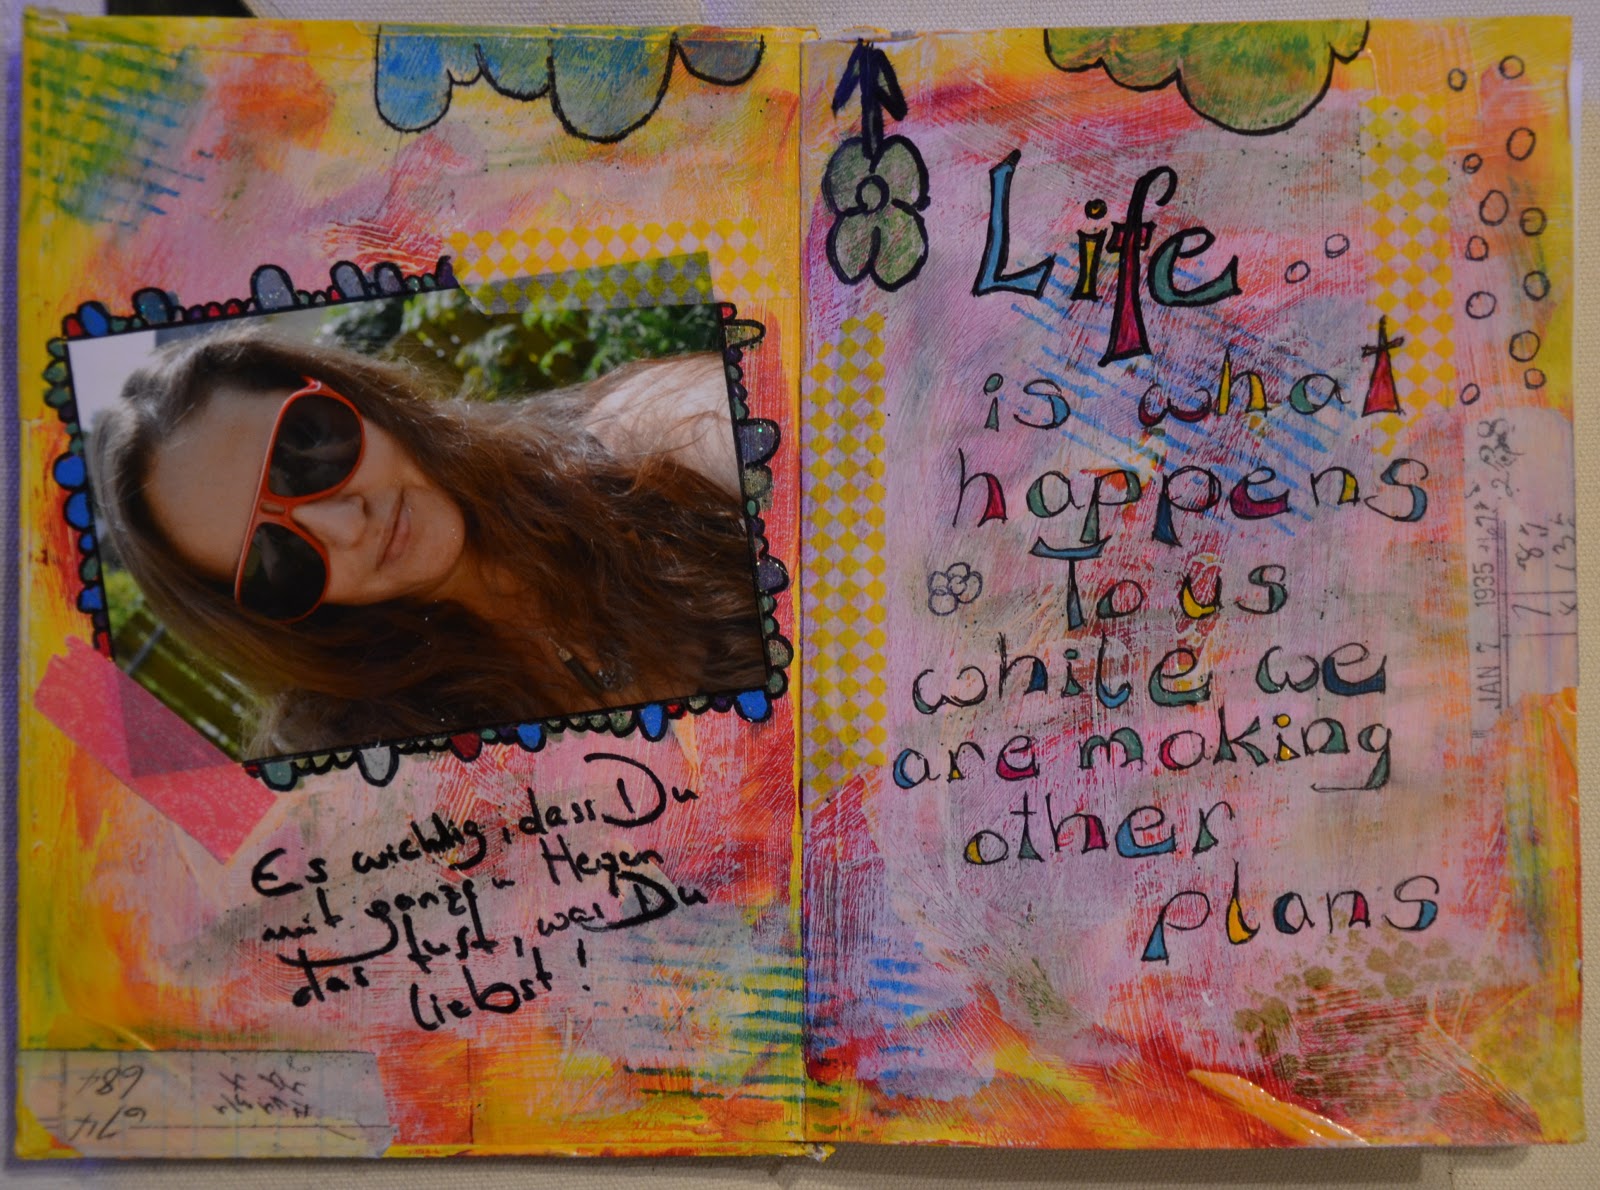 Es wichtig, dass Du
mit ganzen Herzen
das tust, was Du
liebst!
684
674
Life
is what
happens
To us
while we
are making
other
plans
JAN 7 1935